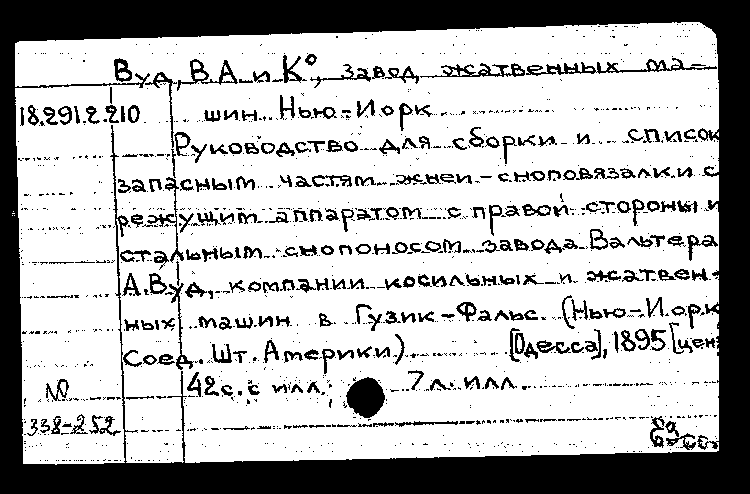 Вуд, В. А. и К°, завод жатвенных ма-
18.291.2.210 шин. Нью-Йорк
Руководство для сборки и список
запасным частям жнеи-сноповязалки с
режущим аппаратом с правой стороны и
стальным снопоносом завода Вальтера
А. Вуд, компании косильных и жатвен-
ных машин в Гузик-Фальс. (Нью-Йорк
Соед. Шт. Америки). [Одесса], 1895 [ценз
№ 42 с. с илл.; 7 л. илл.
338-252